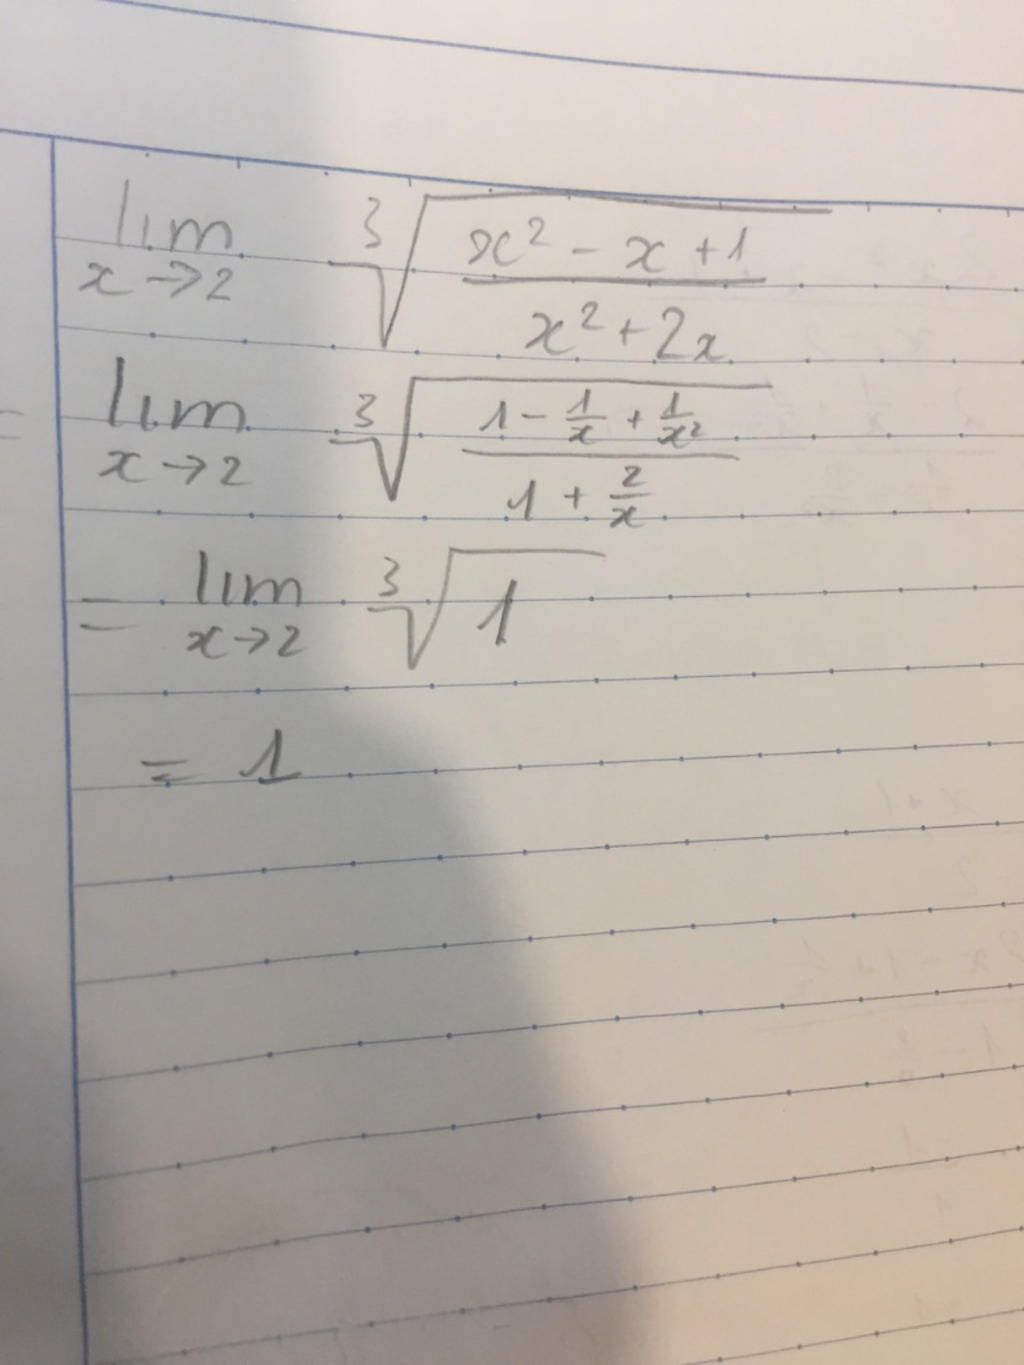 lim x→2 ∛((x² - x + 1)/(x² + 2x))
= lim x→2 ∛((1 - 1/x + 1/x²)/(1 + 2/x))
= lim x→2 ∛1
= 1